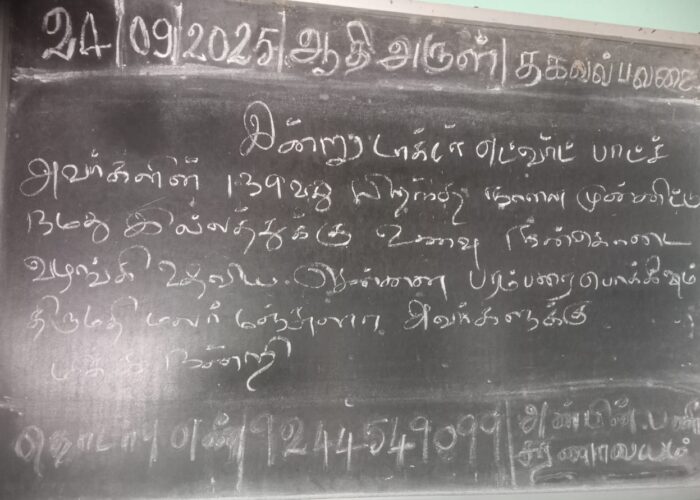 24/09/2025/ஆதி அருள்/ தகவல் பலகை
இன்று டாக்டர் எட்வர்ட் பாட்ச்
அவர்களின் 139வது பிறந்த நாளை முன்னிட்டு
நமது இல்லத்துக்கு உணவு நன்கொடை
வழங்கி உதவிய சென்னை பரம்பரை
திருமதி மலர் அவர்களுக்கு
மிக்க நன்றி
தொடர்பு எண் 9244549099 அன்பின் பணி
சரணாலயம்